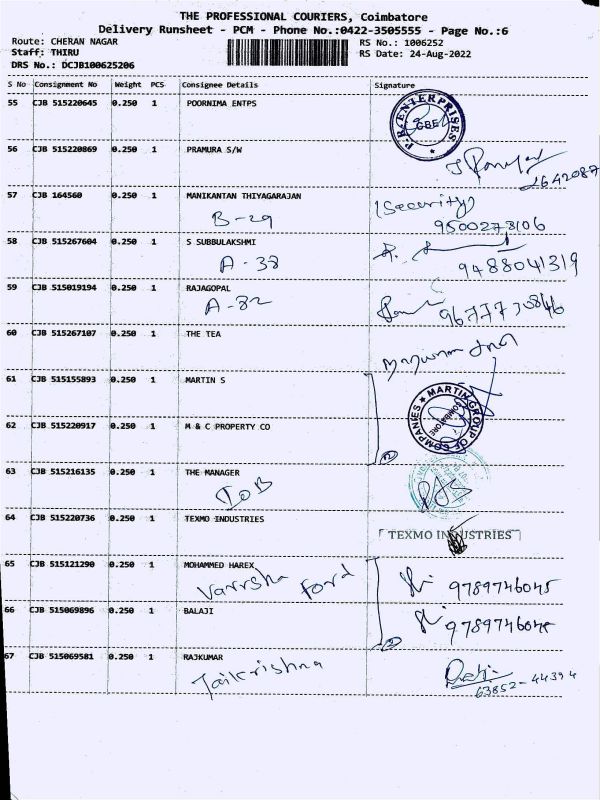 THE PROFESSIONAL COURIERS, Coimbatore
Delivery Runsheet - PCM - Phone No.:0422-3505555 - Page No.:6
Route: CHERAN NAGAR
Staff: THIRU
DRS No.: DCJB100625206
RS No.: 1006252
RS Date: 24-Aug-2022
S No Consignment No Weight PCS Consignee Details Signature
55 CJB 515220645 0.250 1 POORNIMA ENTPS
P.R. ENTERPRISES
CBE
56 CJB 515220869 0.250 1 PRAMURA S/W
2642087
57 CJB 164560 0.250 1 MANIKANTAN THIYAGARAJAN (Security)
B-29 9500278106
58 CJB 515267604 0.250 1 S SUBBULAKSHMI
A-38 9488041319
59 CJB 515019194 0.250 1 RAJAGOPAL
A-82 9677730846
60 CJB 515267107 0.250 1 THE TEA
61 CJB 515155893 0.250 1 MARTIN S
MARTIN GROUP OF COMPANIES
COIMBATORE
62 CJB 515220917 0.250 1 M & C PROPERTY CO
2
63 CJB 515216135 0.250 1 THE MANAGER
IOB
64 CJB 515220736 0.250 1 TEXMO INDUSTRIES
TEXMO INDUSTRIES
65 CJB 515121290 0.250 1 MOHAMMED HAREX
Varrsha Ford 9789746045
66 CJB 515069896 0.250 1 BALAJI
9789746045
2
67 CJB 515069581 0.250 1 RAJKUMAR
Jaikrishna
63852-44394